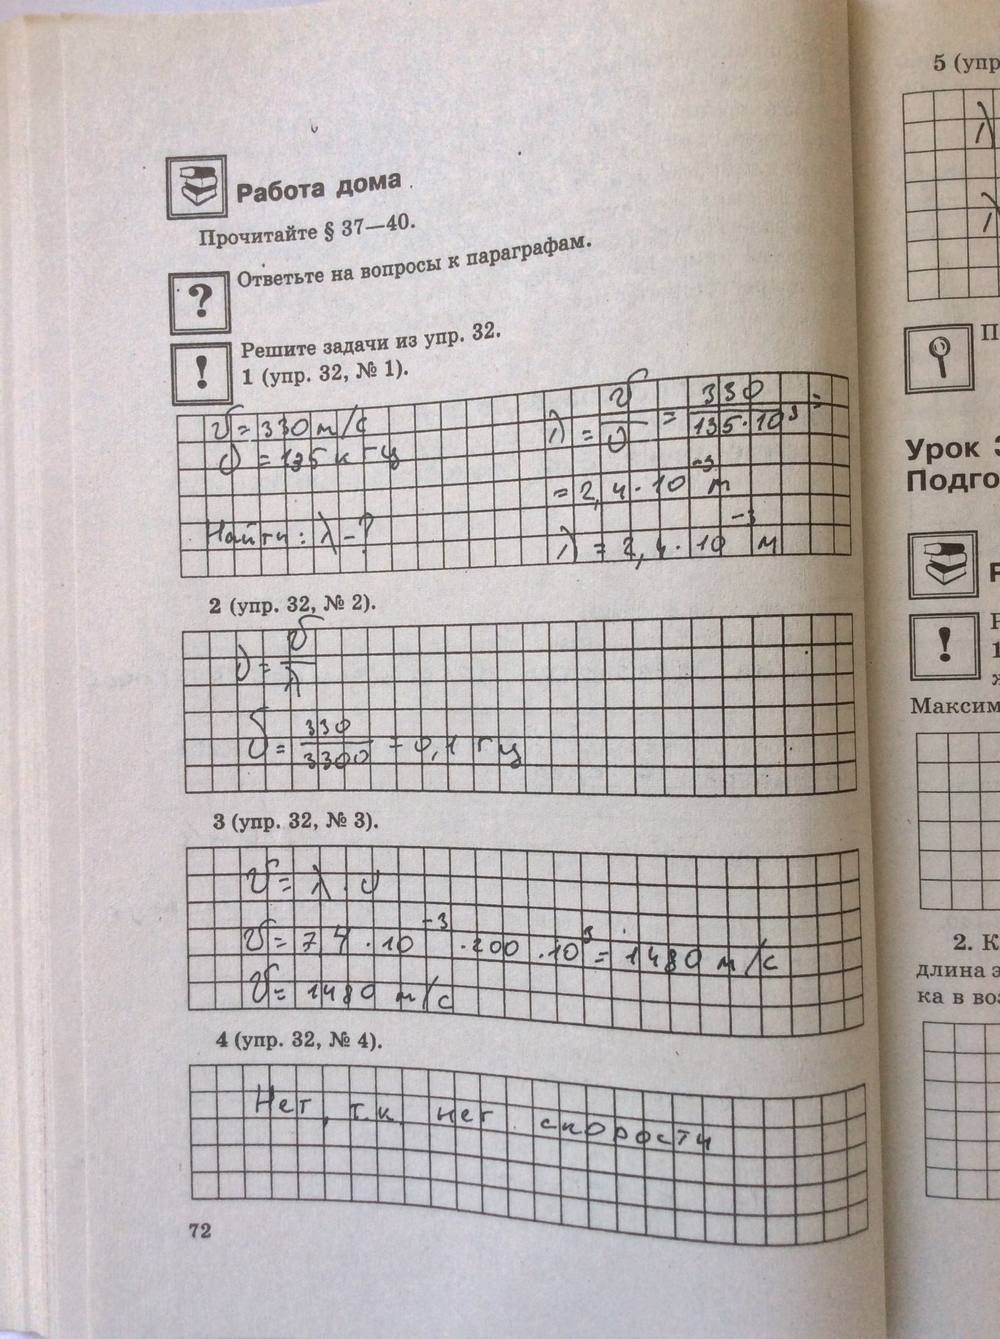 Работа дома
Прочитайте § 37—40.
?
Ответьте на вопросы к параграфам.
!
Решите задачи из упр. 32.
1 (упр. 32, № 1).
υ = 330 м/с
ν = 135 кгц
Найти: λ - ?
λ = υ/ν = 330/135·10³ =
= 2,4·10⁻³ м
λ = 2,4·10⁻³ м
2 (упр. 32, № 2).
ν = υ/λ
υ = 330/3300 = 0,1 гц
3 (упр. 32, № 3).
υ = λ·ν
υ = 7,4·10⁻³·200·10³ = 1480 м/с
υ = 1480 м/с
4 (упр. 32, № 4).
Нет, т.к. нет скорости
72
5 (упр
λ
λ
П
Урок
Подго
!
1
Максим
2. К
длина э
ка в воз